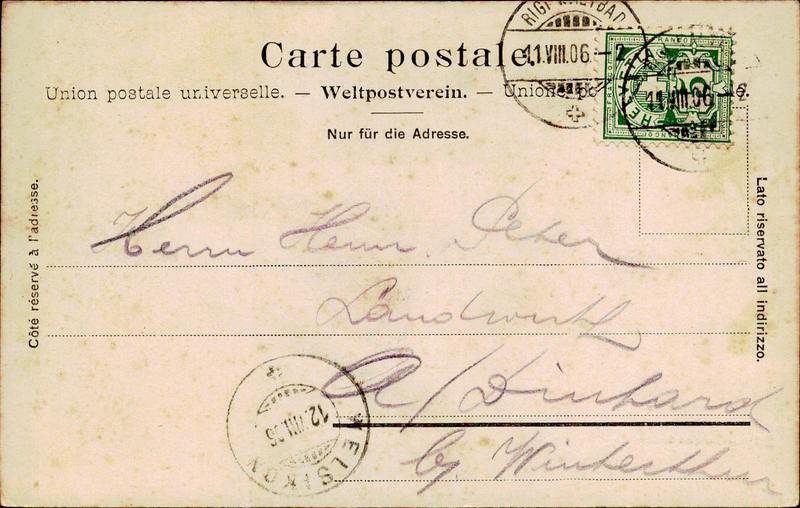 RIGI-KALTBAD
11.VIII.06.-2
Carte postale.
11.VIII.06
Union postale universelle. — Weltpostverein. — Unione
Nur für die Adresse.
Côté réservé à l'adresse.
Lato riservato all indirizzo.
Herrn Heinr. Peter
Landwirth
A/Dinhard
by. Winterthur
12.VIII.06
WELSIKON
FRANCO
HELVETIA